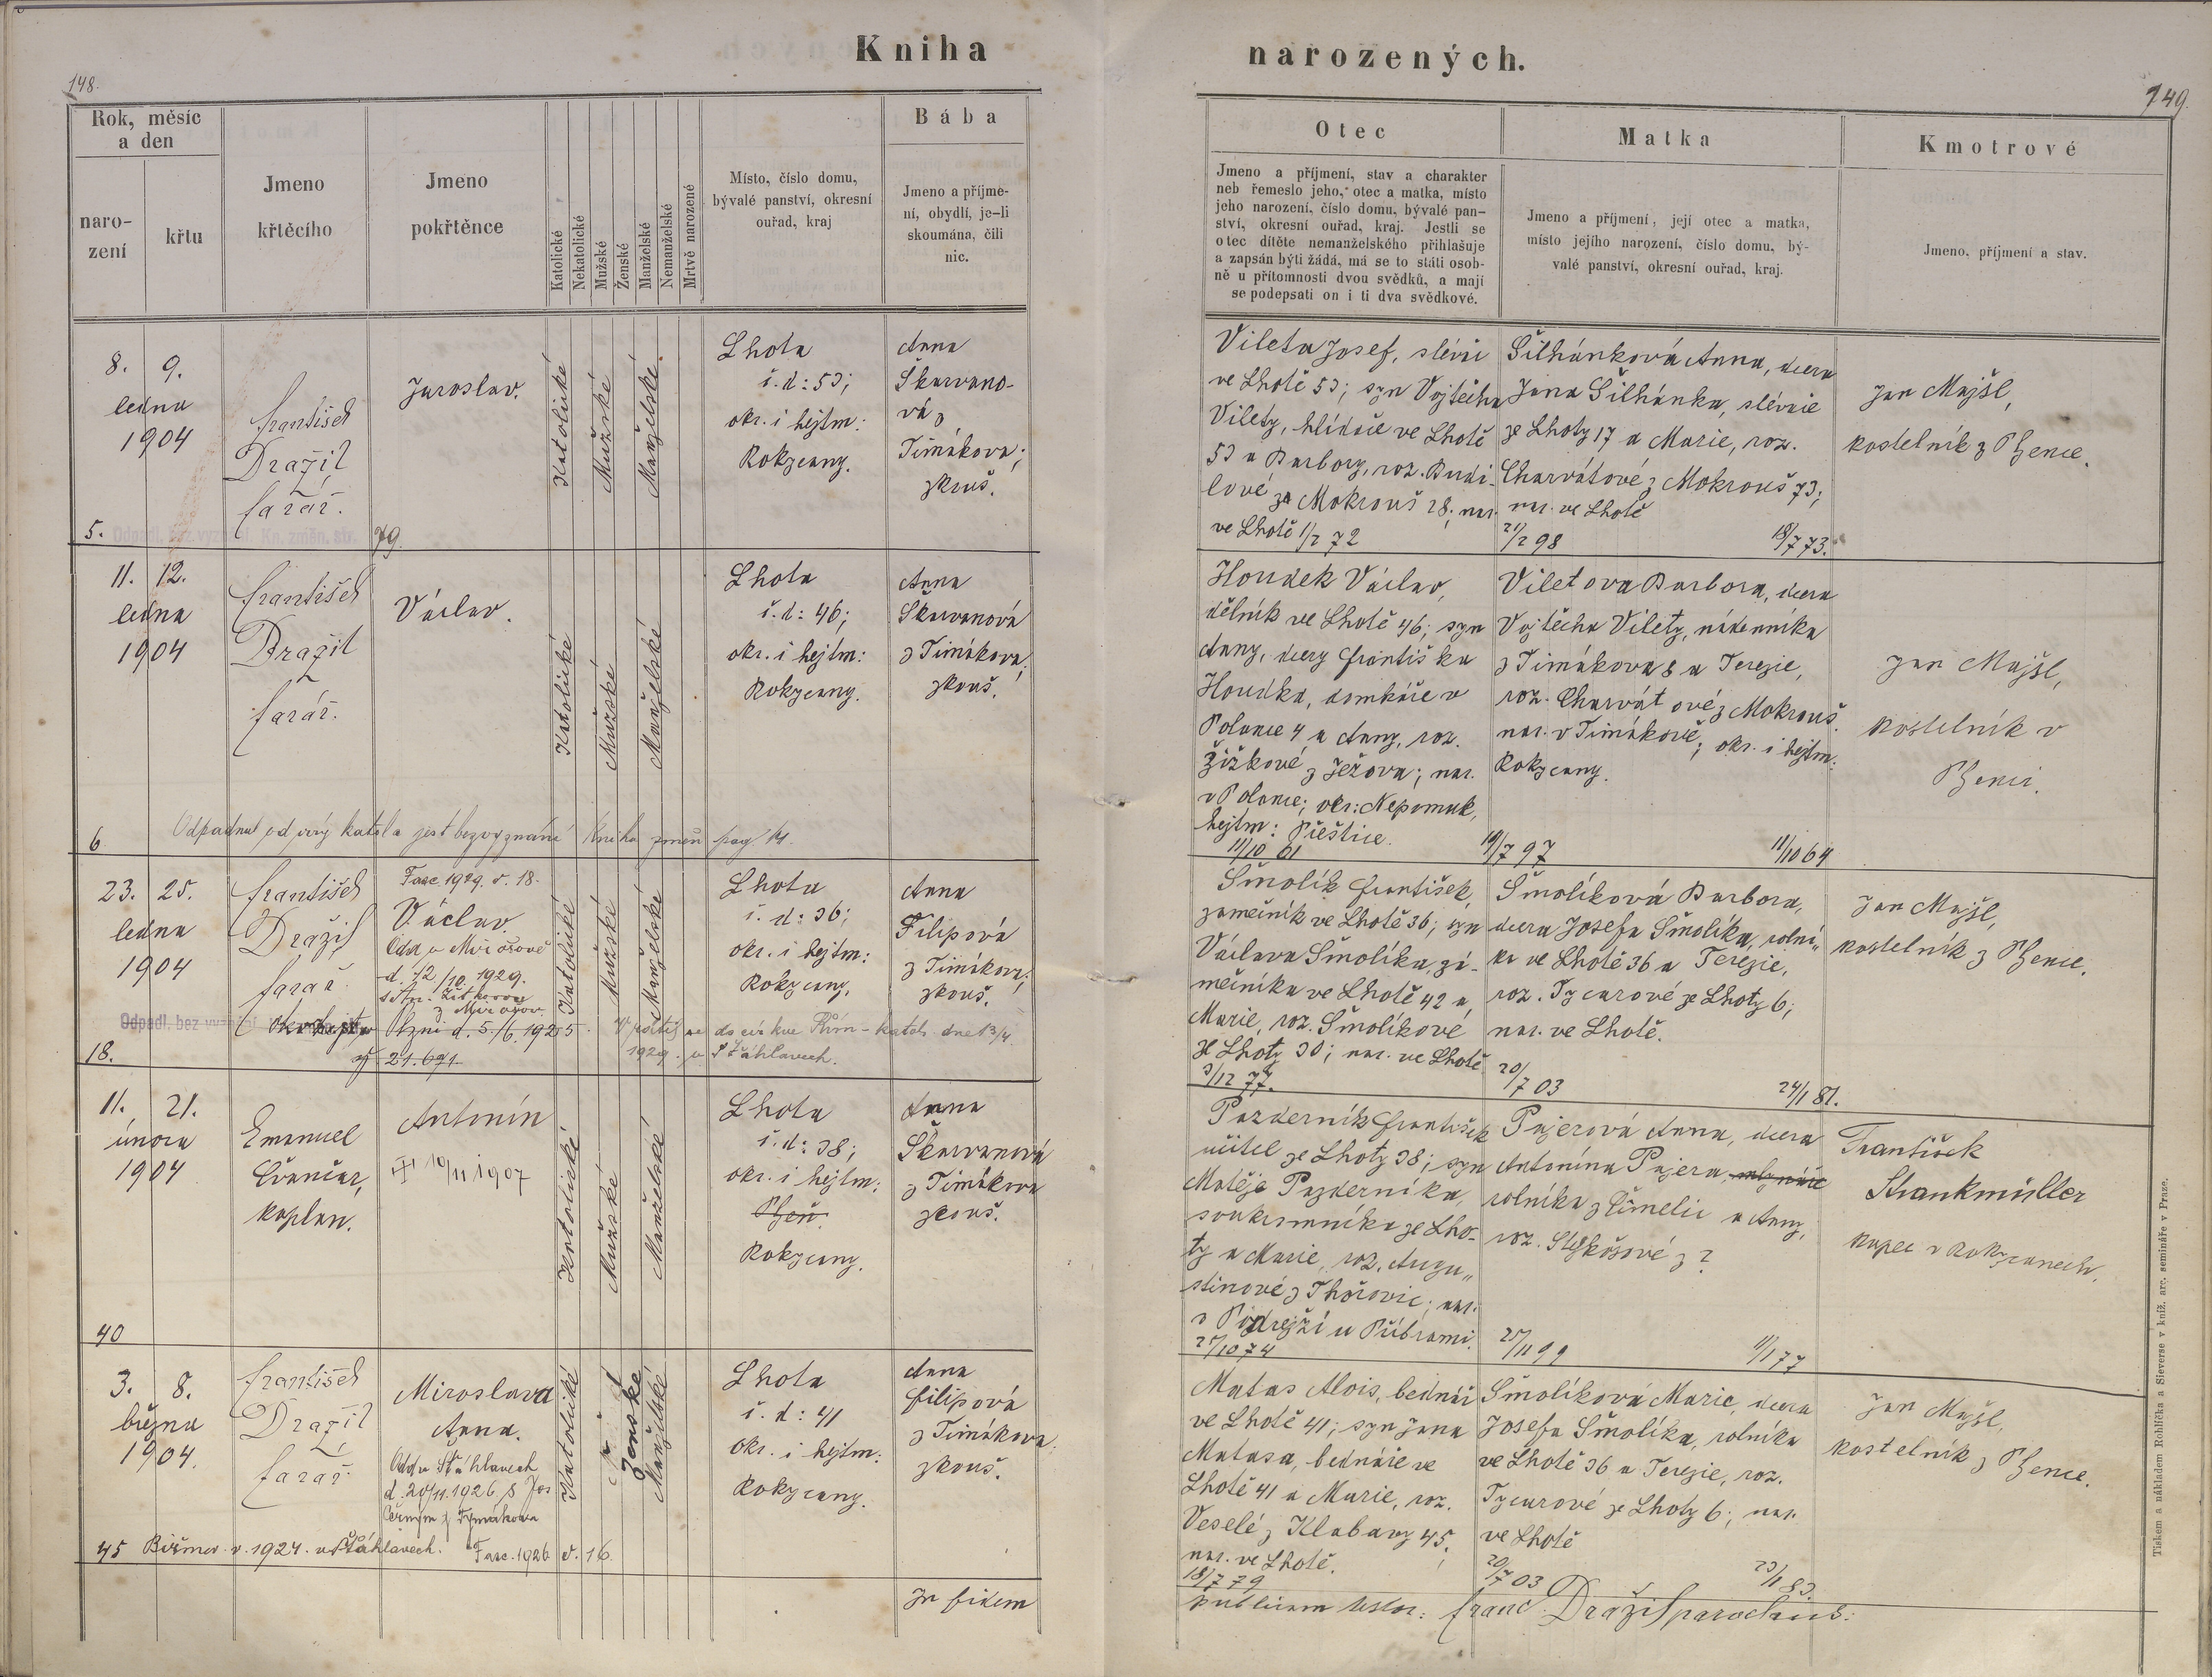 Kniha
narozených.
148.
149.
Rok, měsíc
a den
naro-
zení
křtu
Jmeno
křtěcího
Jmeno
pokřtěnce
Katolické
Nekatolické
Mužské
Ženské
Manželské
Nemanželské
Mrtvě narozené
Místo, číslo domu,
bývalé panství, okresní
ouřad, kraj
Bába
Jmeno a příjme-
ní, obydlí, je-li
skoumána, čili
nic.
Otec
Jmeno a příjmení, stav a charakter
neb řemeslo jeho, otec a matka, místo
jeho narození, číslo domu, bývalé pan-
ství, okresní ouřad, kraj. Jestli se
otec dítěte nemanželského přihlašuje
a zapsán býti žádá, má se to státi osob-
ně u přítomnosti dvou svědků, a mají
se podepsati on i ti dva svědkové.
Matka
Jmeno a příjmení, její otec a matka,
místo jejího narození, číslo domu, bý-
valé panství, okresní ouřad, kraj.
Kmotrové
Jmeno, příjmení a stav.
8. 9.
ledna
1904
František
Dražil
farář.
Jaroslav.
Katolické
Mužské
Manželské
Lhota
č. d: 53;
okr. i hejtm:
Rokycany.
Anna
Škarvano-
vá z
Timákova;
zkouš.
5. Odpadl, bez vyznání. Kn. změn. str. 79.
Vileta Josef, slévač
ve Lhotě 53; syn Vojtěcha
Vilety, hlídače ve Lhotě
53 a Barbory, roz. Budi-
lové ze Mokrouš 28; nar.
ve Lhotě 1/2 72
Šilhánková Anna, dcera
Jana Šilhánka, slévače
ze Lhoty 17 a Marie, roz.
Charvátové z Mokrouš 73;
nar. ve Lhotě
21/2 98 18/7 73.
Jan Majšl,
kostelník z Pženic.
11. 12.
ledna
1904
František
Dražil
farář.
Václav.
Katolické
Mužské
Manželské
Lhota
č. d: 46;
okr. i hejtm:
Rokycany.
Anna
Škarvanová
z Timákova;
zkouš.
6 Odpadnul od církve katol. a jest bez vyznání Kniha změn pag 14.
Houdek Václav,
dělník ve Lhotě 46; syn
Anny, dcery Františka
Houdka, domkáře v
Polance 4 a Anny, roz.
Žižkové z Ježova; nar.
v Polance; okr: Nepomuk,
hejtm: Přeštice.
11/10 61
Viletova Barbora, dcera
Vojtěcha Vilety, nádenníka
z Timákova 8 a Terezie,
roz. Charvátové z Mokrouš
nar. v Timákově; okr. i hejtm:
Rokycany.
19/7 97 11/10 64
Jan Majšl,
kostelník v
Pženici.
23. 25.
ledna
1904
František
Dražil
farář
Fasc. 1929. č. 18.
Václav.
Odd. v Mirošově
d. 12/10. 1929.
Katolické
Mužské
Manželské
Lhota
č. d: 36;
okr. i hejtm:
Rokycany.
Anna
Filipová
z Timákova;
zkouš.
Odpadl, bez vyznání
Plzni d. 5./6. 1925. Vrátil se do církve Řím-katol. dne 13/4
18. čj 21.691 1929. v Šťáhlavech.
Šmolík František,
zámečník ve Lhotě 36; syn
Václava Šmolíka, zá-
mečníka ve Lhotě 42 a
Marie, roz. Šmolíkové
ze Lhoty 30; nar. ve Lhotě
3/12 77.
Šmolíková Barbora,
dcera Josefa Šmolíka, rolní-
ka ve Lhotě 36 a Terezie,
roz. Tycarové ze Lhoty 6;
nar. ve Lhotě.
20/7 03 24/1 81.
Jan Majšl,
kostelník z Pženic.
11. 21.
února
1904
Emanuel
Čvančar,
kaplan.
Antonín
19/11 1907
Katolické
Mužské
Manželské
Lhota
č. d: 38;
okr. i hejtm:
Plzeň
Rokycany.
Anna
Škarvanová
z Timákova
zkouš.
40
Pazderník František
učitel ze Lhoty 38; syn
Matěje Pazderníka,
soukromníka ze Lho-
ty a Marie, roz. Augu-
stinové z Thořovic; nar.
v Podrejží u Příbrami.
27/10 74
Pajerová Anna, dcera
Antonína Pajera mlynáře
rolníka z Čimelic a Anny,
roz. Slyškošové z ?
27/11 99 11/1 77
František
Strankmüller
kupec v Rokycanech.
3. 8.
března
1904.
František
Dražil
farář
Miroslava
Anna.
Odd. v Šťáhlavech
d. 20/11. 1926 s Jos
Černým z Tymákova
Katolické
Ženské
Manželské
Lhota
č. d: 41
okr. i hejtm:
Rokycany.
Anna
Filipová
z Timákova;
zkouš.
45 Biřmov. r. 1924. v Šťáhlavech. Fasc. 1926 č. 16.
Matas Alois, bednář
ve Lhotě 41; syn Jana
Matasa, bednáře ve
Lhotě 41 a Marie, roz.
Veselé z Klabavy 45;
nar. ve Lhotě.
18/7 79
Šmolíková Marie, dcera
Josefa Šmolíka, rolníka
ve Lhotě 36 a Terezie, roz.
Tycarové ze Lhoty 6; nar.
ve Lhotě
20/7 03 23/1 83.
Jan Majšl,
kostelník z Pženic.
In fidem
publicam testor: Franc. Dražil parochus.
Tiskem a nákladem Rohlíčka a Sieverse v kníž. arc. semináře v Praze.